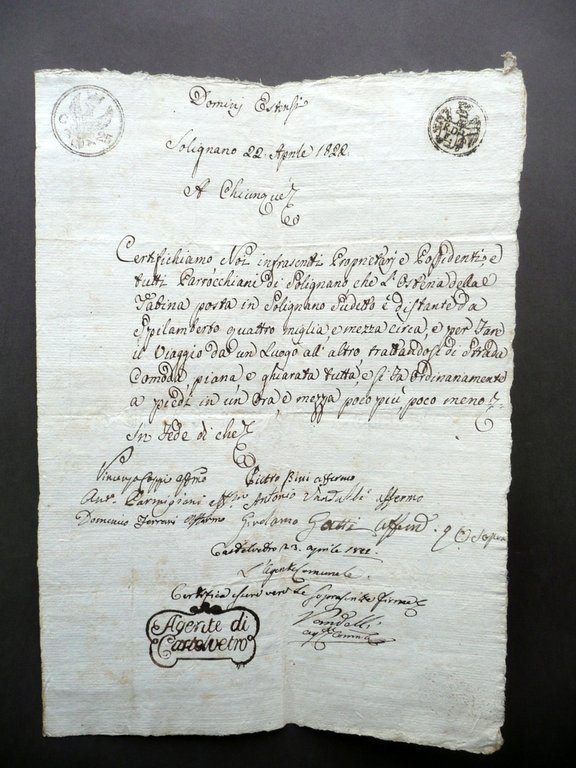 Dominj Estensi
Solignano 22. Aprile 1822
A Chiunque
Certifichiamo Noi infrascritti Proprietarj e Possidenti, e
tutti Parrocchiani di Solignano che l'Osteria della
Tabina posta in Solignano Sudetto è distante da
Spilamberto quattro miglia, e mezza circa, e per Fare
il Viaggio da un Luogo all'altro, trattandosi di Strada
Comoda, piana e ghiarata tutta, e si fa ordinariamente
a piedi in un'ora e mezza, poco più, poco meno
In Fede di che
Vincenzo affermo Pietro Bini affermo
Parmigiani Antonio Vandelli affermo
Domenico Ferrari affermo Girolamo Gatti
Castelvetro 23. aprile 1822.
L'Agente Comunale
Certifica essere vere le soprascritte firme
Vandelli
Agente di
Castelvetro